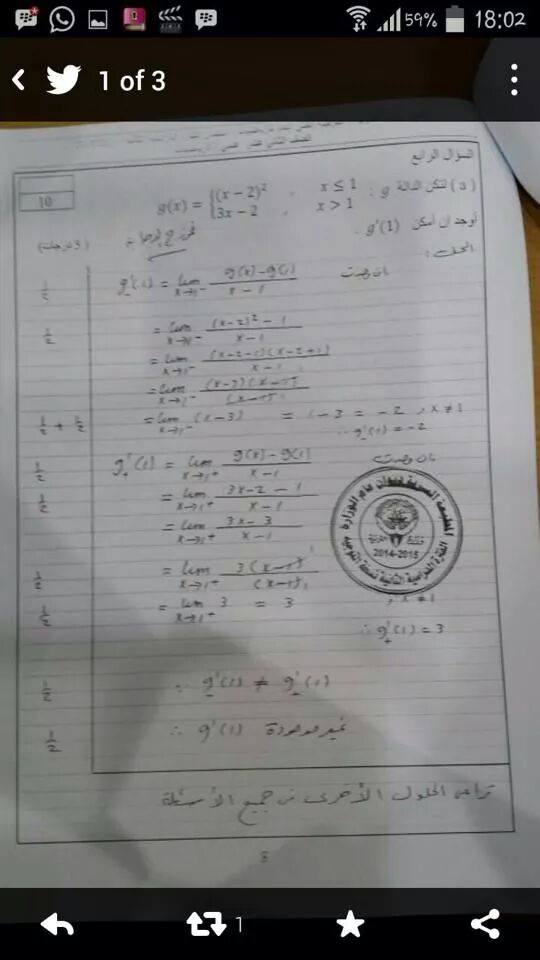 59% 18:02
1 of 3
السؤال الرابع
10
(a) لتكن الدالة g : g(x) = {(x − 2)² , x ≤ 1
3x − 2 , x > 1
أوجد إن أمكن g'(1) .
(3 درجات)
الحل :
½ g'₋(1) = lim x→1⁻ g(x) − g(1) / x − 1
½ = lim x→1⁻ (x−2)² − 1 / x − 1
= lim x→1⁻ (x−2−1)(x−2+1) / x − 1
= lim x→1⁻ (x−3)(x−1) / (x−1)
½ + ½ = lim x→1⁻ (x−3) = 1−3 = −2 , x ≠ 1
∴ g'₋(1) = −2
½ g'₊(1) = lim x→1⁺ g(x) − g(1) / x − 1
½ = lim x→1⁺ 3x − 2 − 1 / x − 1
= lim x→1⁺ 3x − 3 / x − 1
½ = lim x→1⁺ 3(x−1) / (x−1)
½ = lim x→1⁺ 3 = 3 , x ≠ 1
∴ g'₊(1) = 3
2014-2015
½
½ ∴ g'(1) غير موجودة
تراعى الحلول الأخرى في جميع الأسئلة
8
1